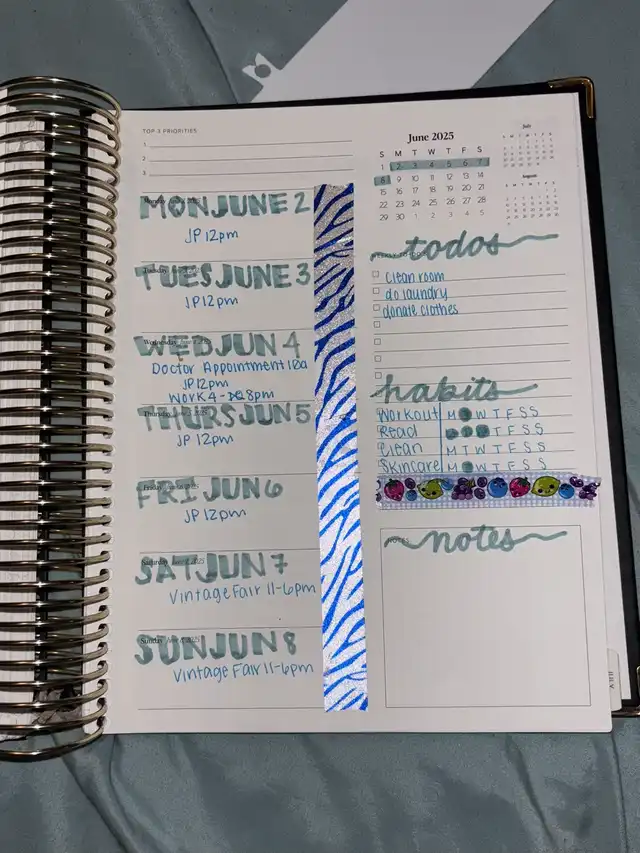 TOP 3 PRIORITIES
1.
2.
3.
MON JUNE 2
JP 12pm
Tuesday
TUES JUNE 3
JP 12pm
Wednesday June 4, 2025
WED JUN 4
Doctor Appointment 10a
JP 12pm
Work 4-8pm
Thursday
THURS JUN 5
JP 12pm
Friday
FRI JUN 6
JP 12pm
Saturday
SAT JUN 7
Vintage Fair 11-6pm
Sunday
SUN JUN 8
Vintage Fair 11-6pm
June 2025
S M T W T F S
1 2 3 4 5 6 7
8 9 10 11 12 13 14
15 16 17 18 19 20 21
22 23 24 25 26 27 28
29 30 1 2 3 4 5
July
August
todos
clean room
do laundry
donate clothes
habits
Workout M T W T F S S
Read M T W T F S S
Clean M T W T F S S
Skincare M T W T F S S
NOTES
notes